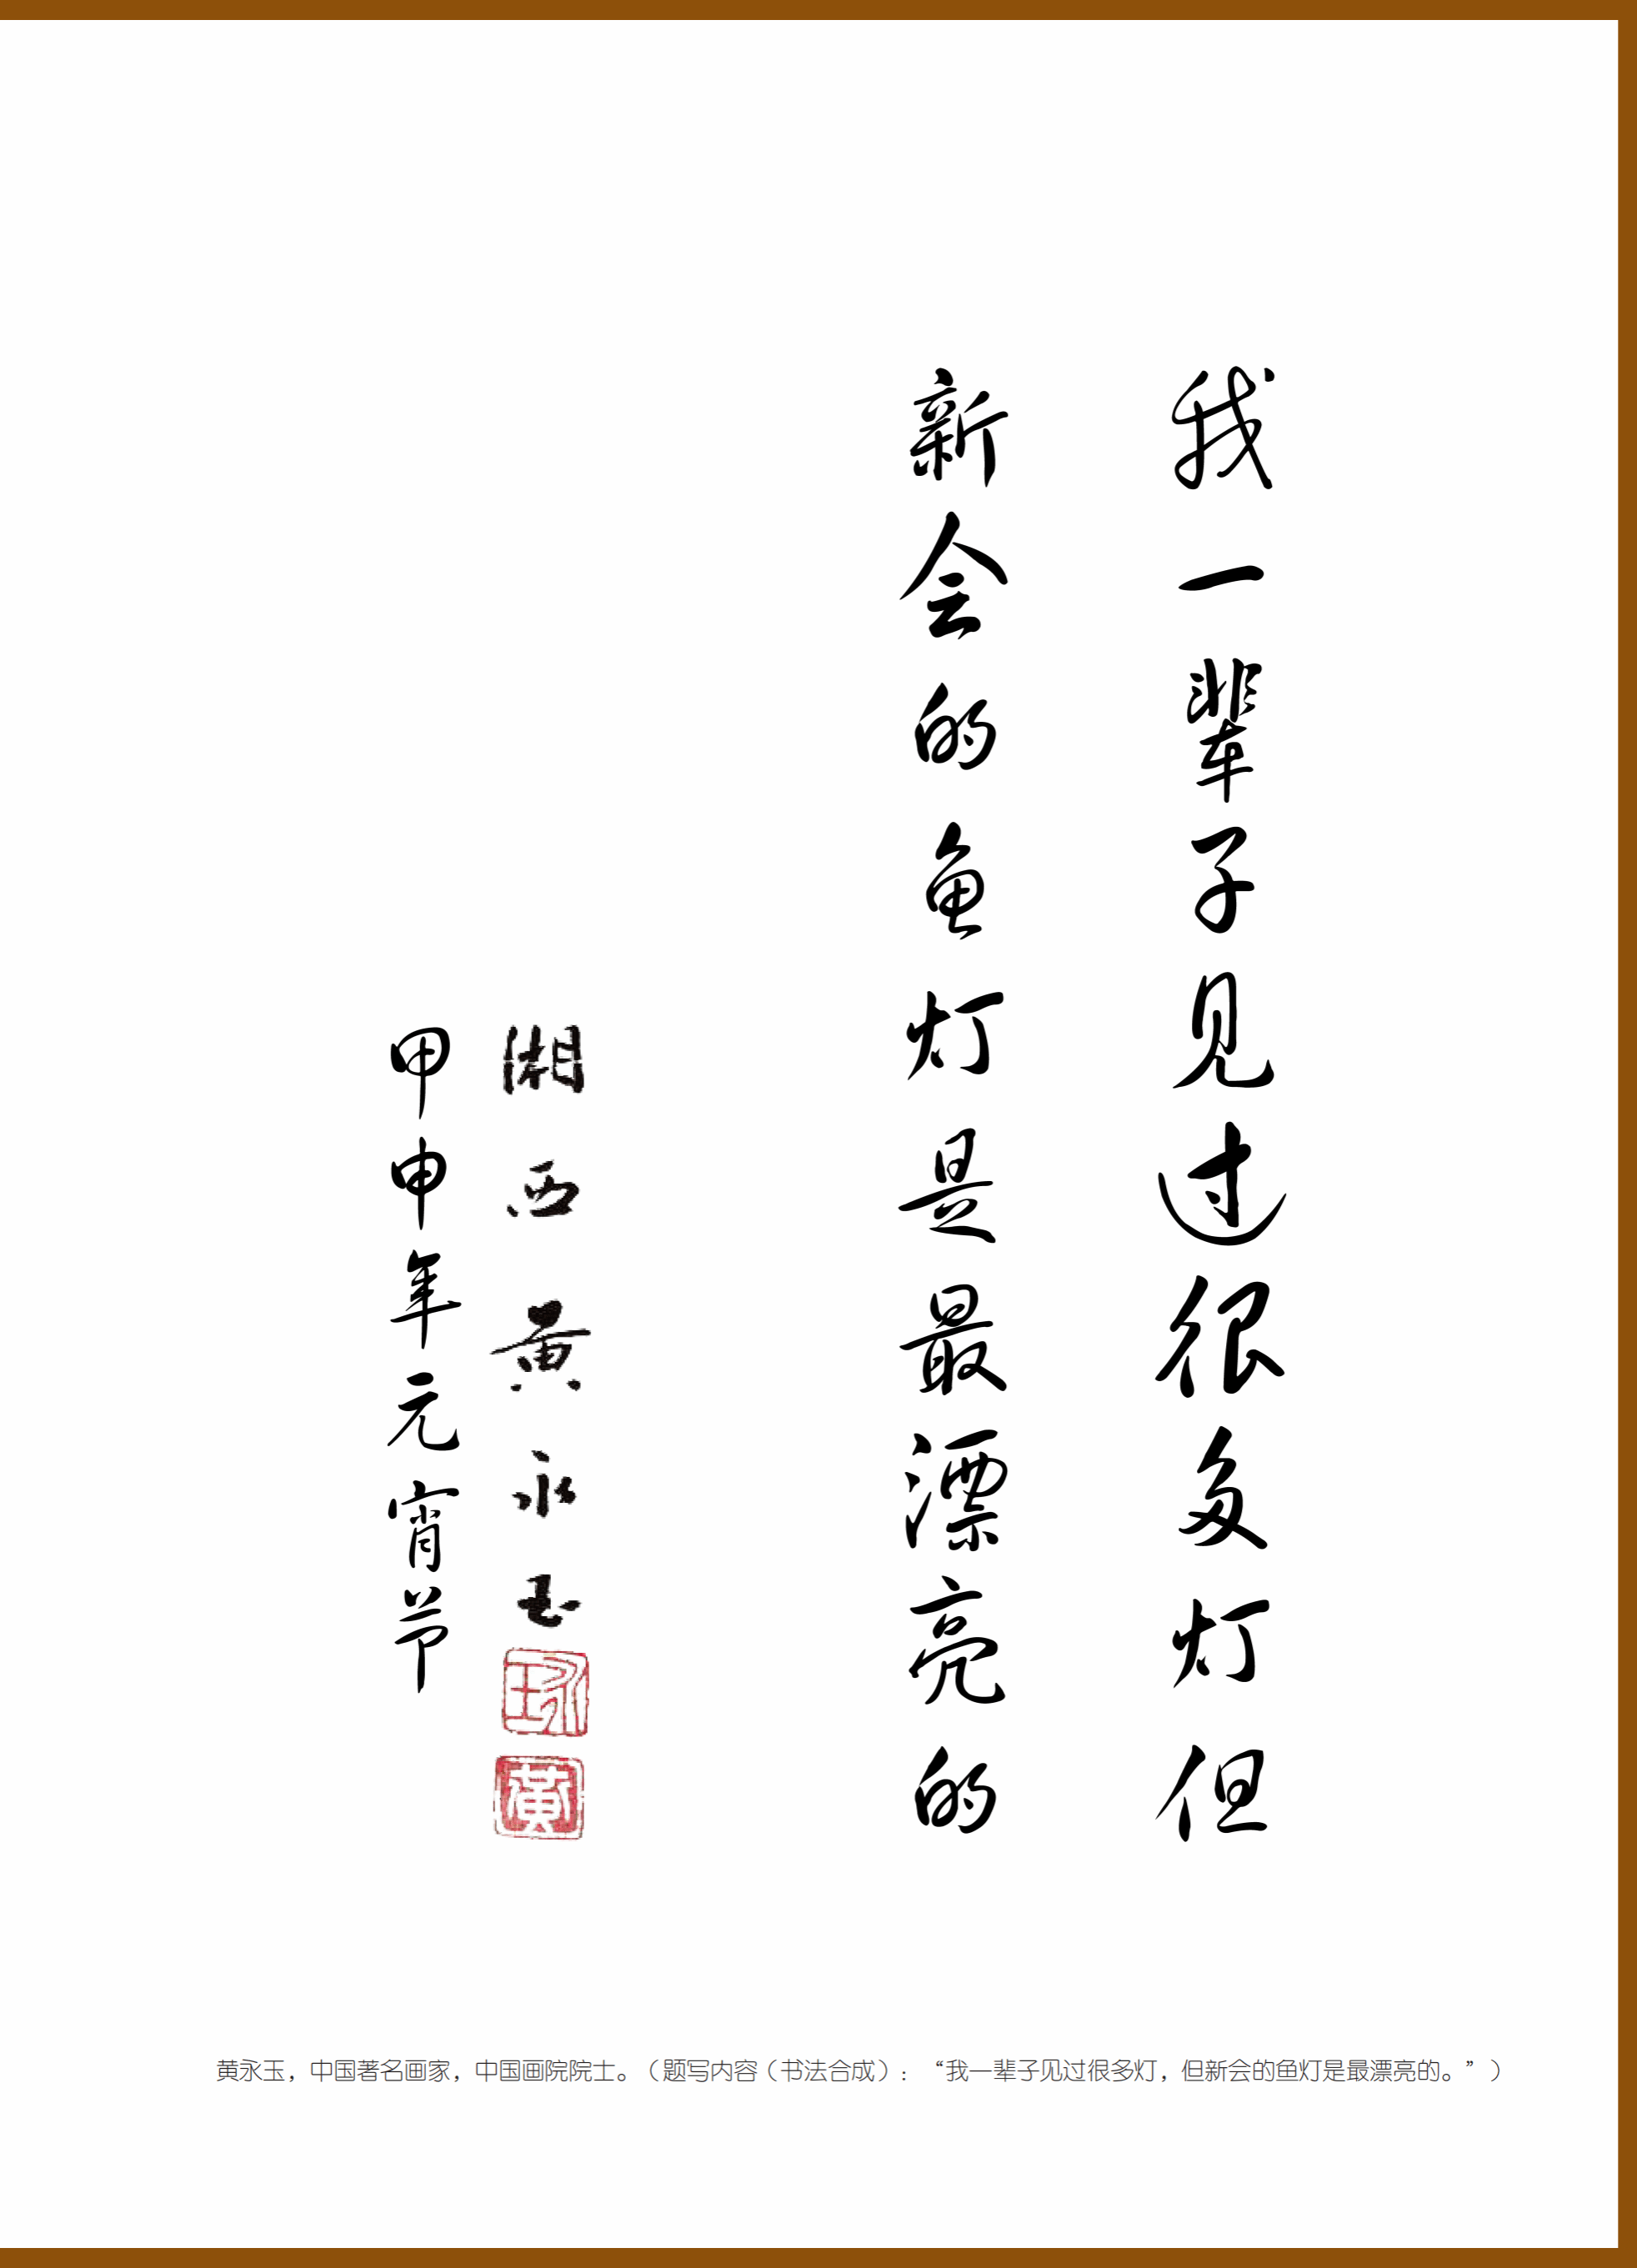 我一辈子见过很多灯但
新会的鱼灯是最漂亮的
湘西黄永玉
永玉
黄
甲申年元宵节
黄永玉，中国著名画家，中国画院院士。（题写内容（书法合成）：“我一辈子见过很多灯，但新会的鱼灯是最漂亮的。”）